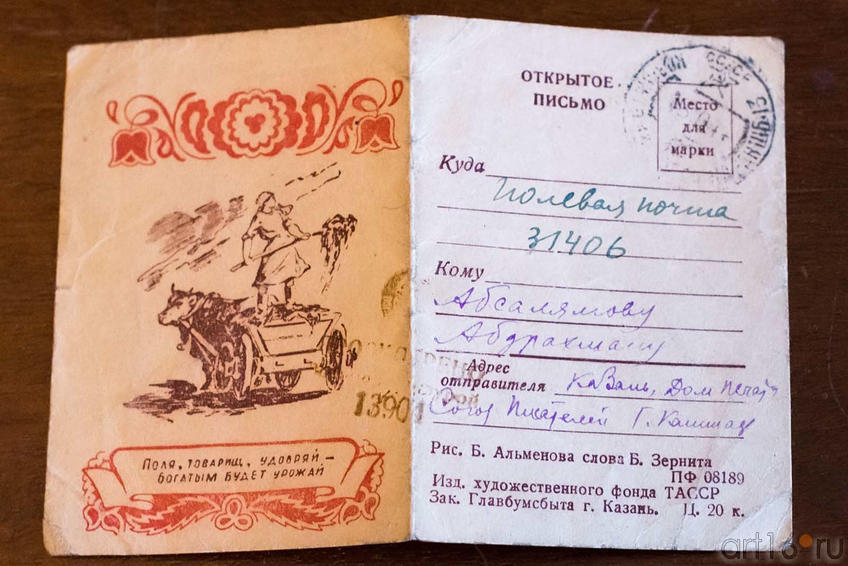 Поля, товарищ, удобряй –
богатым будет урожай
13901
ОТКРЫТОЕ
ПИСЬМО
Место
для
марки
Куда
Полевая почта
31406
Кому
Абсалямову
Абдрахману
Адрес
отправителя Казань, Дом Печати
Союз Писателей Г. Кашшаф
Рис. Б. Альменова слова Б. Зернита
ПФ 08189
Изд. художественного фонда ТАССР
Зак. Главбумсбыта г. Казань. Ц. 20 к.
art16.ru